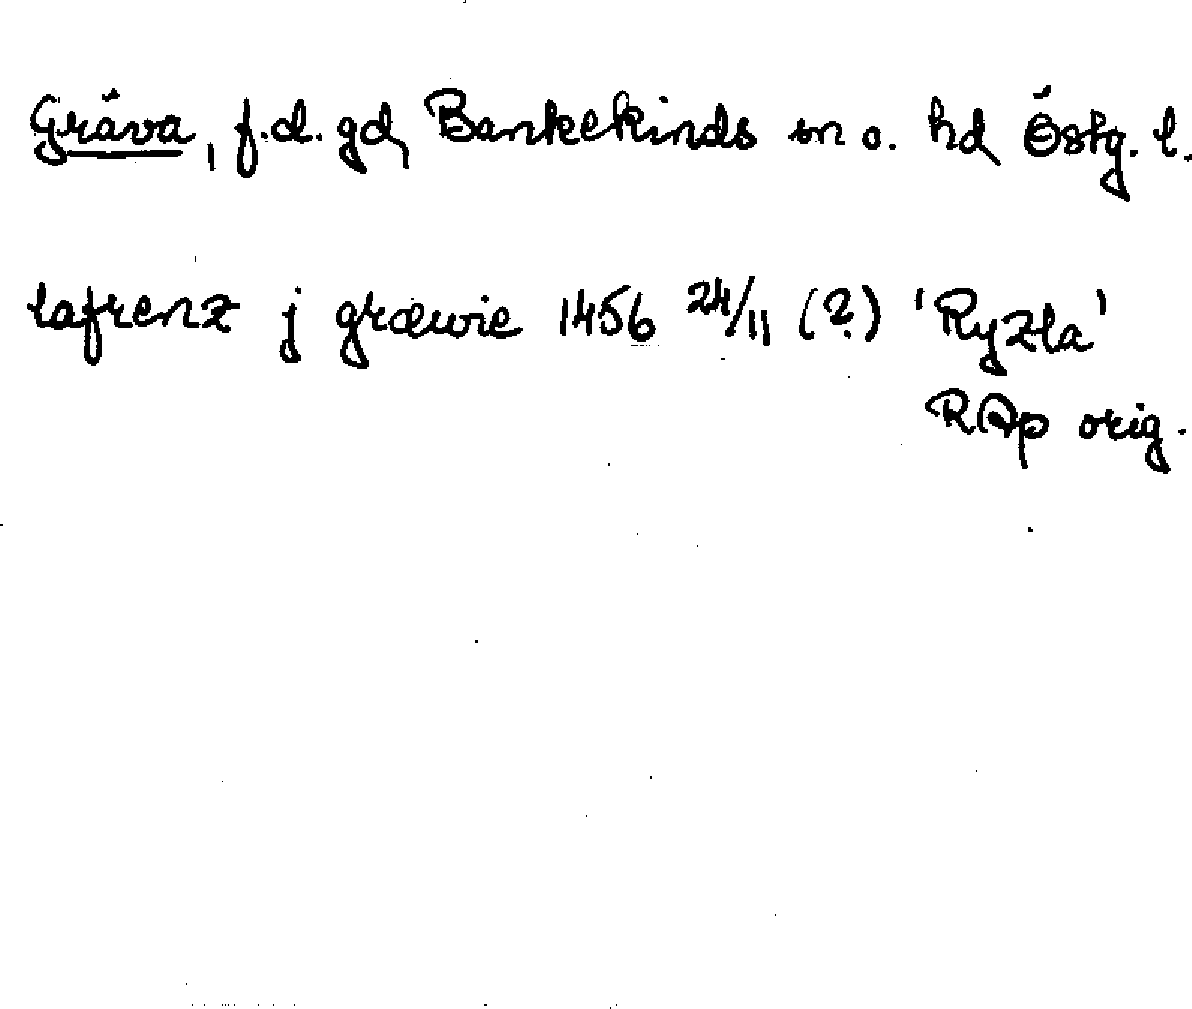 Gräva, f.d. gd, Bankekinds sn o. hd Östg. l.
lafrenz j græwie 1456 24/11 (?) 'Ryzla'
RAp orig.